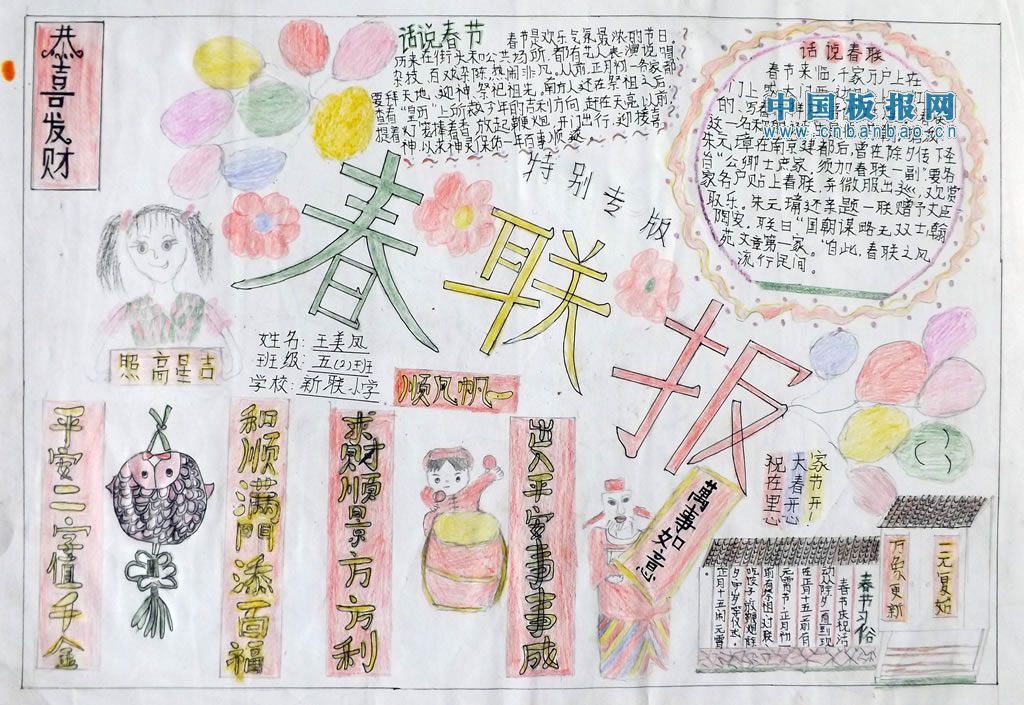 恭喜发财
话说春节
春节是欢乐气氛最浓的节日
历来在街头和公共场所,都有艺人表演说唱
杂技,百戏杂陈,热闹非凡。从前,正月初一令家都
要拜天地、迎神、祭祀祖先。南方人还在祭祖之后
查看“皇历”上所载今年的吉利方向,赶在天亮以前
提着灯笼捧着香,放起鞭炮,开门出行,迎接喜
神,以求神灵保佑一年百事顺遂
特别专版
话说春联
春节来临,千家万户上在
中国板报网
www.cnbanbao.cn
朱元璋在南京建都后,曾在除夕传下圣
旨“公卿士庶家,须加春联一副”要为
家各户贴上春联,并微服出巡,欢赏
取乐。朱元璋还亲题一联赠予大臣
陶安,联曰“国朝谋略无双士,翰
苑文章第一家。”自此,春联之风
流行民间。
春联报
姓名:王美凤
班级:五(2)班
学校:新联小学
照高星吉
顺风帆一
平安二字值千金
和顺满門添百福
求财顺景方方利
出入平安事事成
萬事如意
家节开!
大春开心
祝在里
春节习俗
春节庆祝活
动从除夕一直到
正月十五闹元宵
万象更新
一元复始